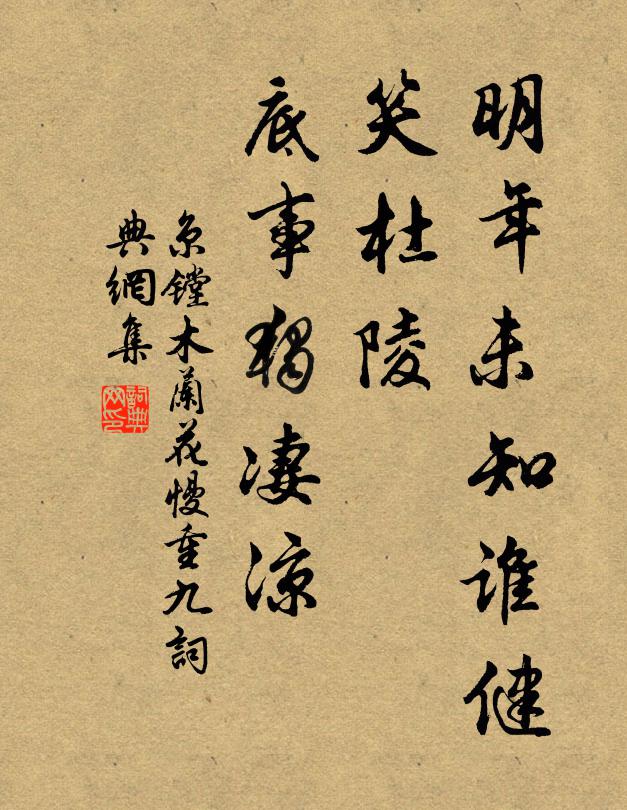 明年未知谁健
笑杜陵
底事独凄凉
京镗木蘭花慢重九詞
典網集
詞典
网印